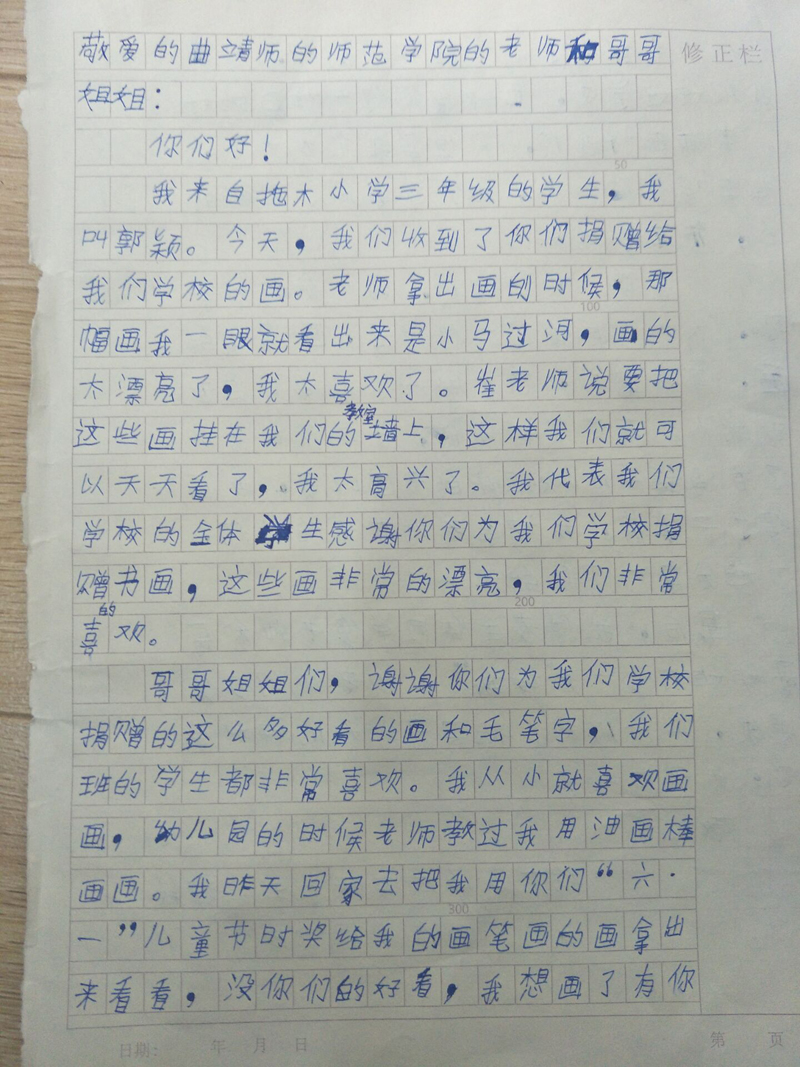 敬爱的曲靖师的师范学院的老师和哥哥
修正栏
姐姐：
你们好！
50
我来自拖木小学三年级的学生，我
叫郭颖。今天，我们收到了你们捐赠给
我们学校的画。老师拿出画的时候，那
100
幅画我一眼就看出来是小马过河，画的
太漂亮了，我太喜欢了。崔老师说要把
这些画挂在我们的教室墙上，这样我们就可
以天天看了，我太高兴了。我代表我们
学校的全体学生感谢你们为我们学校捐
赠书画，这些画非常的漂亮，我们非常
200
的喜欢。
哥哥姐姐们，谢谢你们为我们学校
捐赠的这么多好看的画和毛笔字，我们
班的学生都非常喜欢。我从小就喜欢画
画，幼儿园的时候老师教过我用油画棒
画画。我昨天回家去把我用你们“六·
300
一”儿童节时奖给我的画笔画的画拿出
来看看，没你们的好看，我想画了有你
日期： 年 月 日
第 页